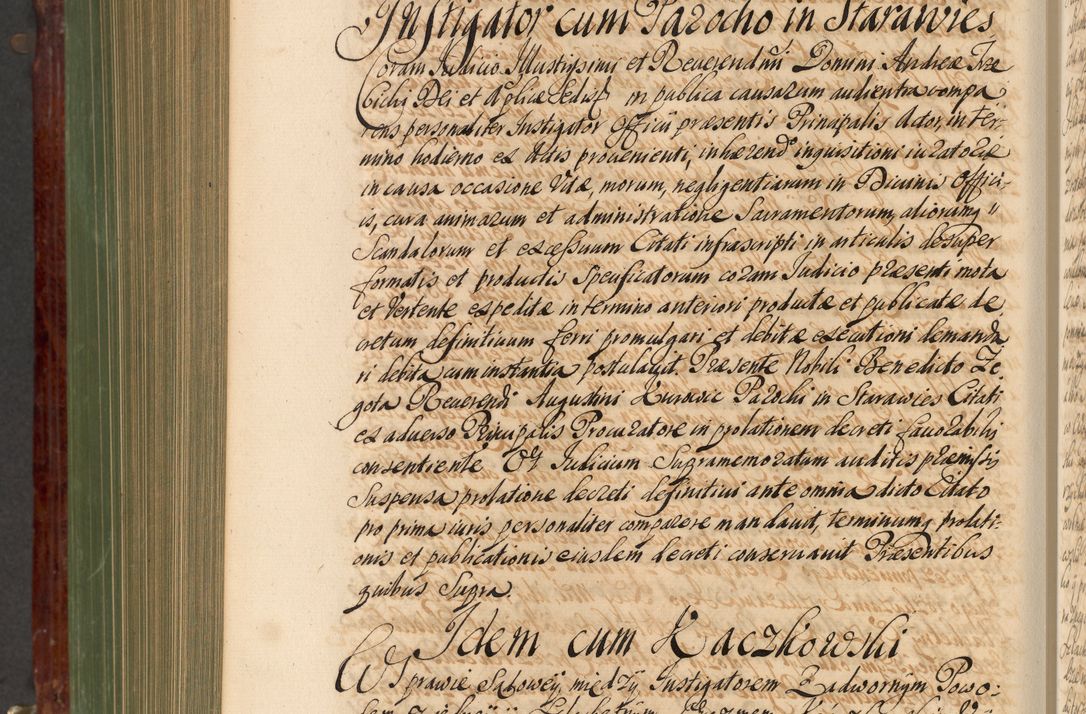 Instigator cum Parocho in Starawies
Coram Judicio Illustrissimi et Reverendissimi Domini Andreæ Trze
bicki Dei et Aplicæ Sedis in publica causarum audientia compa
rens personaliter Instigator Officii præsentis Principalis Actor, in ter-
mino hodierno ex Actis provenienti, inhærendo inquisitioni iuratoriæ
in causa occasione Vitæ, morum, negligentiarum in Divinis Offici-
is, cura animarum et administratione Sacramentorum, aliorumq
Scandalorum et excessuum Citati infrascripti in articulis desuper
formatis et productis specificatorum coram Judicio præsenti mota
et Vertente expeditæ in termino anteriori productæ et publicatæ de
cretum definitivum ferri promulgari et debitæ executioni demanda
ri debita cum instantia postulavit. Præsente Nobili Benedicto Ze
gota Reverendi Augustini Kurowic Parochi in Starawies Citati
ex adverso Principalis Procuratore in prolationem decreti favorabilis
consentiente. Et Judicium Supramemoratum auditis præmissis
Suspensa prolatione decreti definitivi ante omnia dicto Citato
pro prima iuris personaliter comparere mandavit, terminumq prolati-
onis et publicationis eiusdem decreti conservavit Præsentibus
quibus Supra.
Idem cum Kaczkowski
W Sprawie Sądowey między Instigatorem Zadwornym Powo-